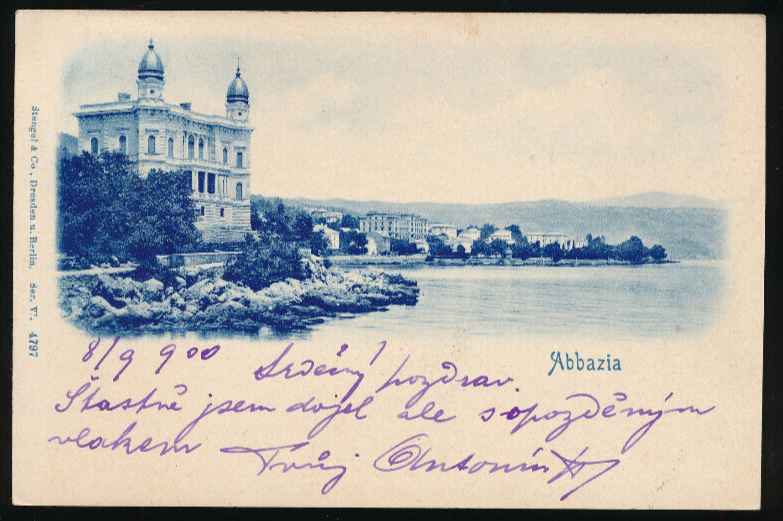 Stengel & Co., Dresden u. Berlin. Ser. V. 4797
Abbazia
8/9 900 Srdečný pozdrav.
Šťastně jsem dojel ale s opozděným
vlakem Tvůj Antonín